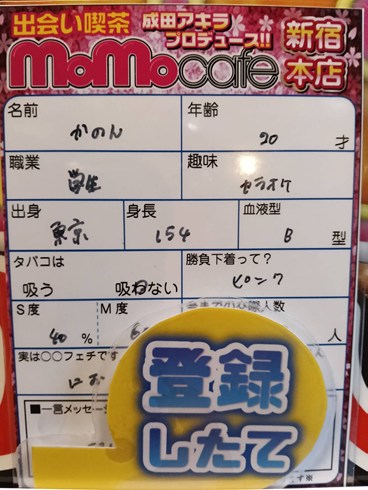 出会い喫茶 成田アキラ プロデュース!! 新宿本店
MoMocafe
名前 年齢
かのん 20 才
職業 趣味
学生 カラオケ
出身 身長 血液型
東京 154 B 型
タバコは 勝負下着って?
吸う 吸わない ピンク
S度 M度 人数
40 % 人
実は○○フェチです
にお
登録
したて
■一言メッセージ
す※